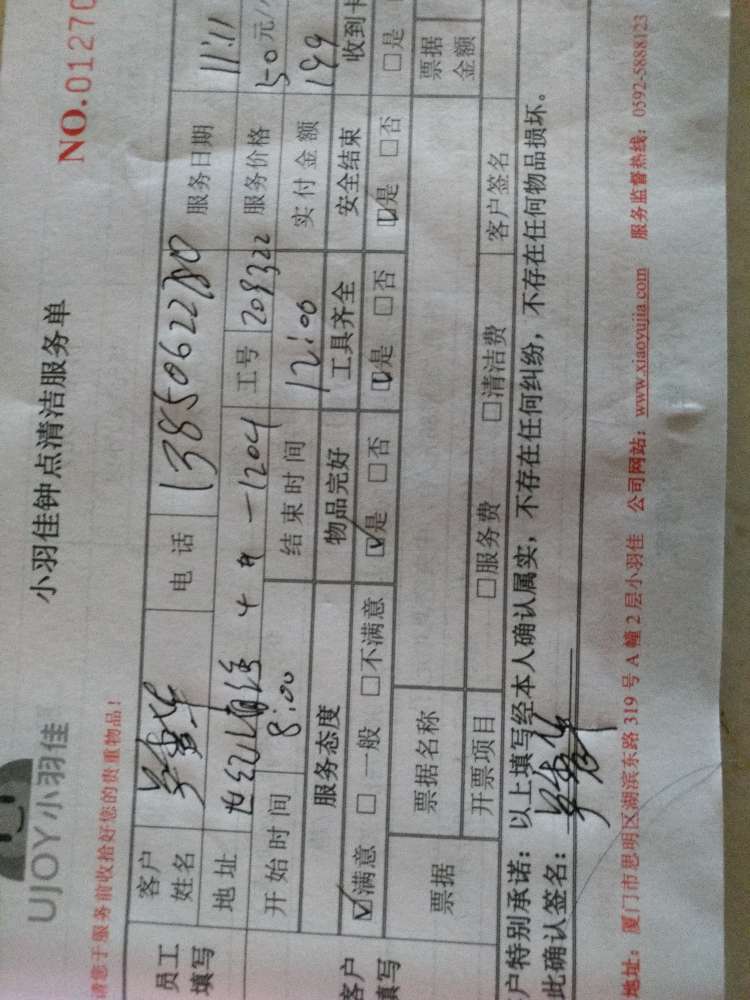 UJOY小羽佳
小羽佳钟点清洁服务单
NO.01270
请您于服务前收拾好您的贵重物品!
员工填写
客户姓名
电话 13850622780
服务日期 11.11
地址
工号 209322
服务价格 50元/
开始时间 8:00
结束时间 12:00
实付金额 199
客户填写
服务态度 物品完好 工具齐全 安全结束 收到卡
☑满意 □一般 □不满意 ☑是 □否 ☑是 □否 ☑是 □否 □是
票据 票据名称 票据金额
开票项目 □服务费 □清洁费 客户签名
户特别承诺:以上填写经本人确认属实,不存在任何纠纷,不存在任何物品损坏。
此确认签名:
地址:厦门市思明区湖滨东路 319 号 A 幢 2 层小羽佳 公司网站:www.xiaoyujia.com 服务监督热线:0592-5888123